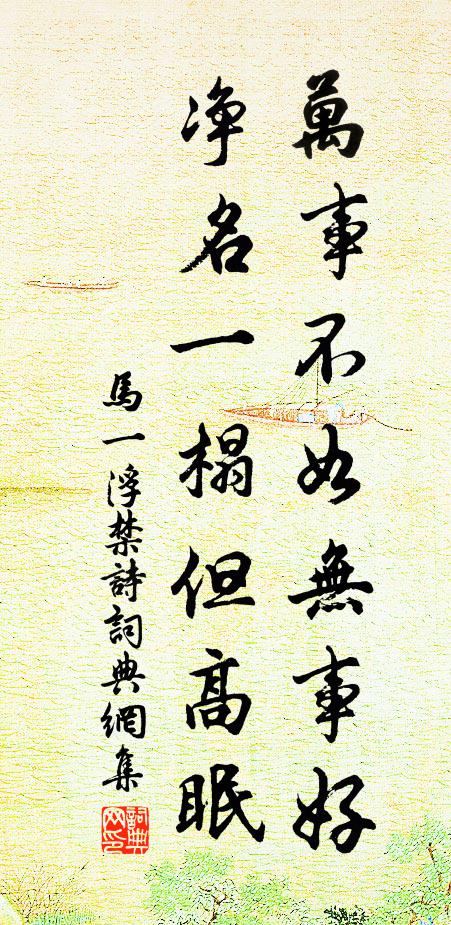 萬事不如無事好
净名一榻但高眠
馬一浮禁詩詞典網集
詞典網印